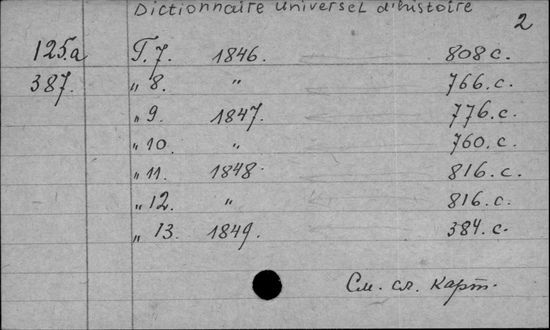 Dictionnaire universel d'histoire
2
125.a Т. 7. 1846. 808 с.
387. " 8. " 766. с.
" 9. 1847. 776. с.
" 10. " 760. с.
" 11. 1848. 816. с.
" 12. " 816. с.
" 13. 1849. 384. с.
См. сл. карт.